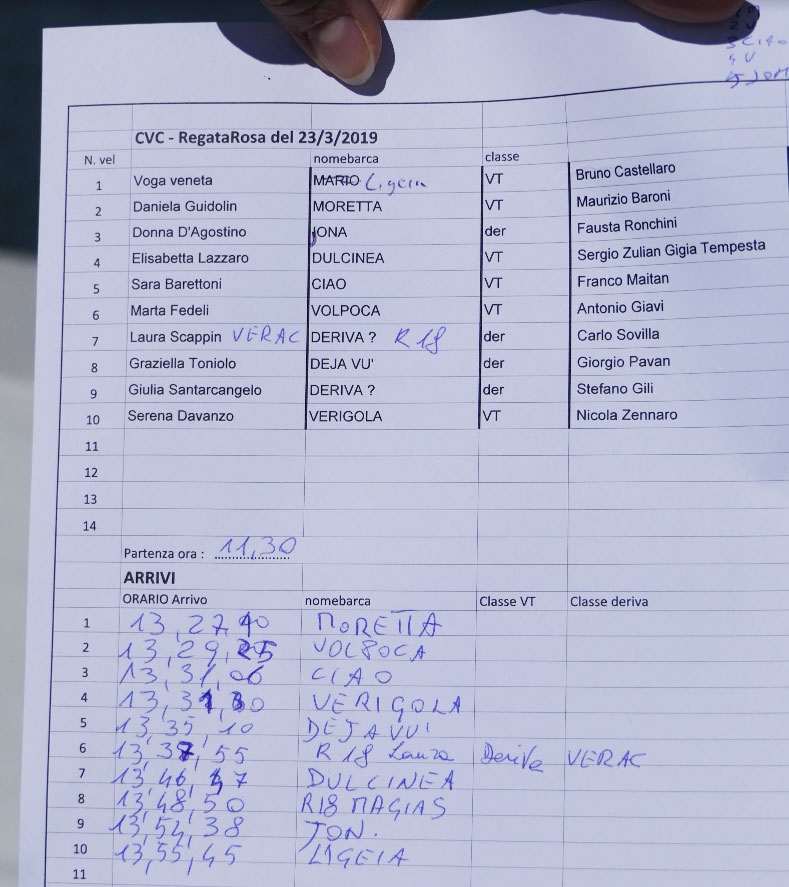 3 CIAO
4 V
CVC - RegataRosa del 23/3/2019
N. vel nomebarca classe
1 Voga veneta MARIO Ligeia VT Bruno Castellaro
2 Daniela Guidolin MORETTA VT Maurizio Baroni
3 Donna D'Agostino JONA der Fausta Ronchini
4 Elisabetta Lazzaro DULCINEA VT Sergio Zulian Gigia Tempesta
5 Sara Barettoni CIAO VT Franco Maitan
6 Marta Fedeli VOLPOCA VT Antonio Giavi
7 Laura Scappin VERAC DERIVA ? R 18 der Carlo Sovilla
8 Graziella Toniolo DEJA VU' der Giorgio Pavan
9 Giulia Santarcangelo DERIVA ? der Stefano Gili
10 Serena Davanzo VERIGOLA VT Nicola Zennaro
11
12
13
14
Partenza ora : 11,30
ARRIVI
ORARIO Arrivo nomebarca Classe VT Classe deriva
1 13,27,40 MORETTA
2 13,29,25 VOLPOCA
3 13,31,06 CIAO
4 13,31,30 VERIGOLA
5 13,35,10 DEJAVU'
6 13,37,55 R 18 Laura Deriva VERAC
7 13,46,47 DULCINEA
8 13,48,50 R18 MAGIAS
9 13,54,38 JON.
10 13,55,45 LIGEIA
11